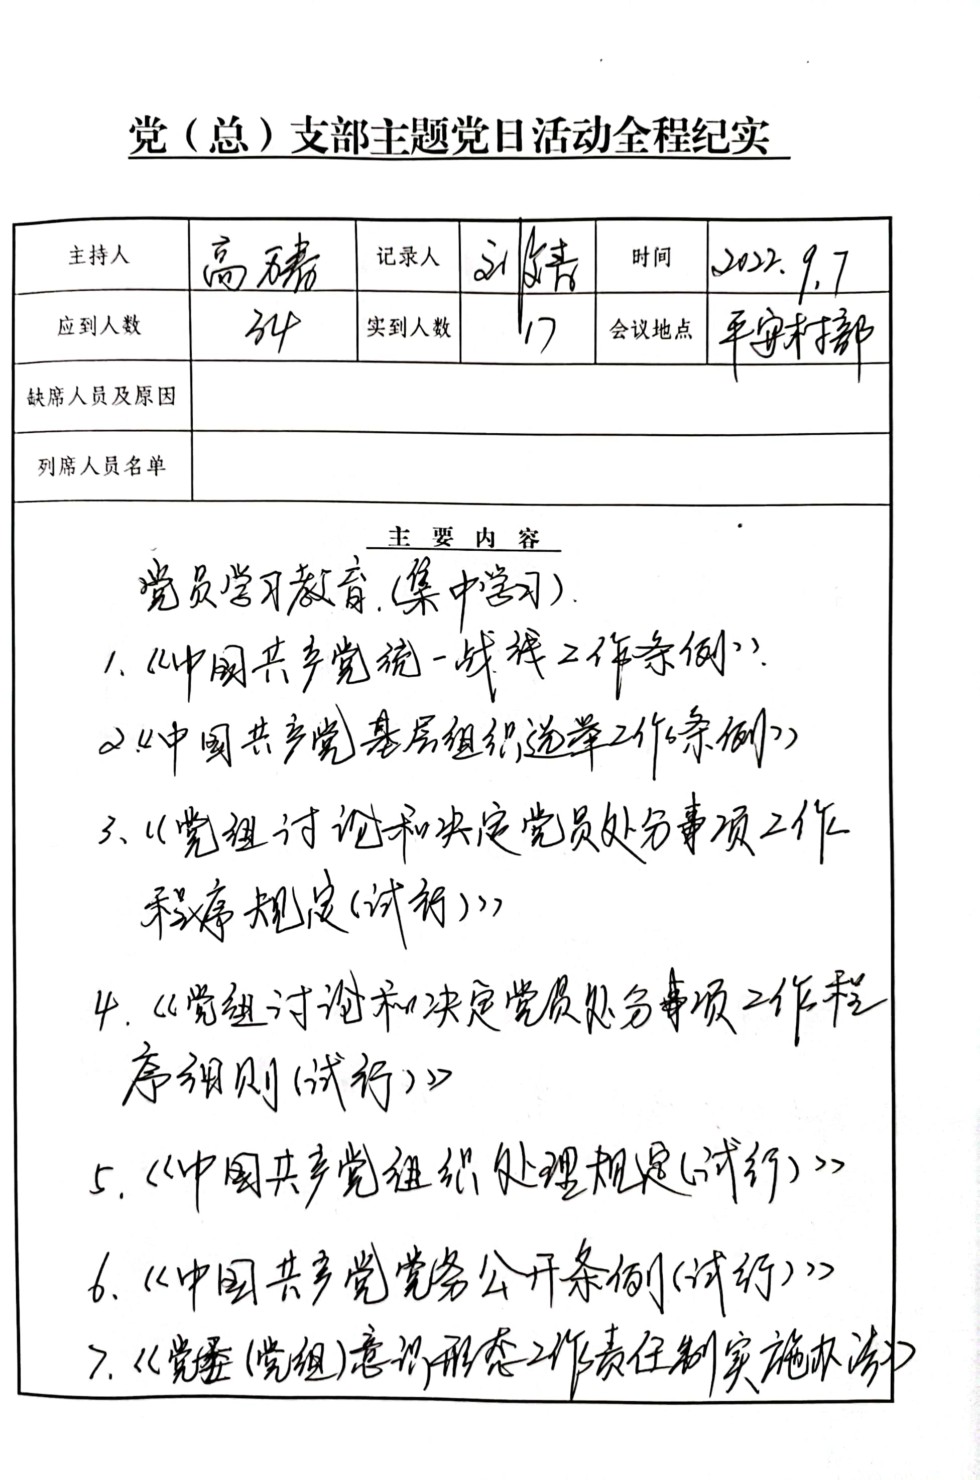 党（总）支部主题党日活动全程纪实
主持人 高 记录人 刘 时间 2022.9.7
应到人数 34 实到人数 17 会议地点 平安村部
缺席人员及原因
列席人员名单
主要内容
党员学习教育.(集中学习).
1.《中国共产党统一战线工作条例》.
2.《中国共产党基层组织选举工作条例》
3、《党组讨论和决定党员处分事项工作
程序规定(试行)》
4.《党组讨论和决定党员处分事项工作程
序细则(试行)》
5.《中国共产党组织处理规定(试行)》
6.《中国共产党党务公开条例(试行)》
7.《党委(党组)意识形态工作责任制实施办法》